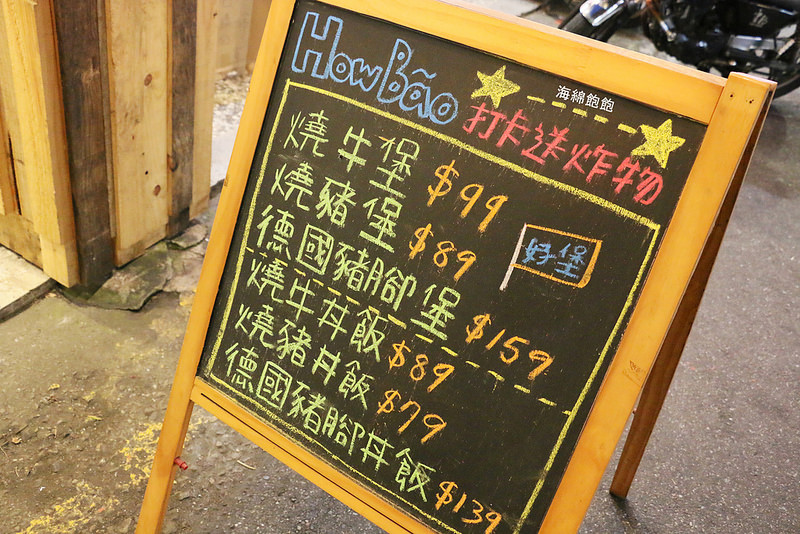 How Bão
海綿飽飽
打卡送炸物
燒牛堡 $99
燒豬堡 $89
好堡
德國豬腳堡 $159
燒牛丼飯 $89
燒豬丼飯 $79
德國豬腳丼飯 $139